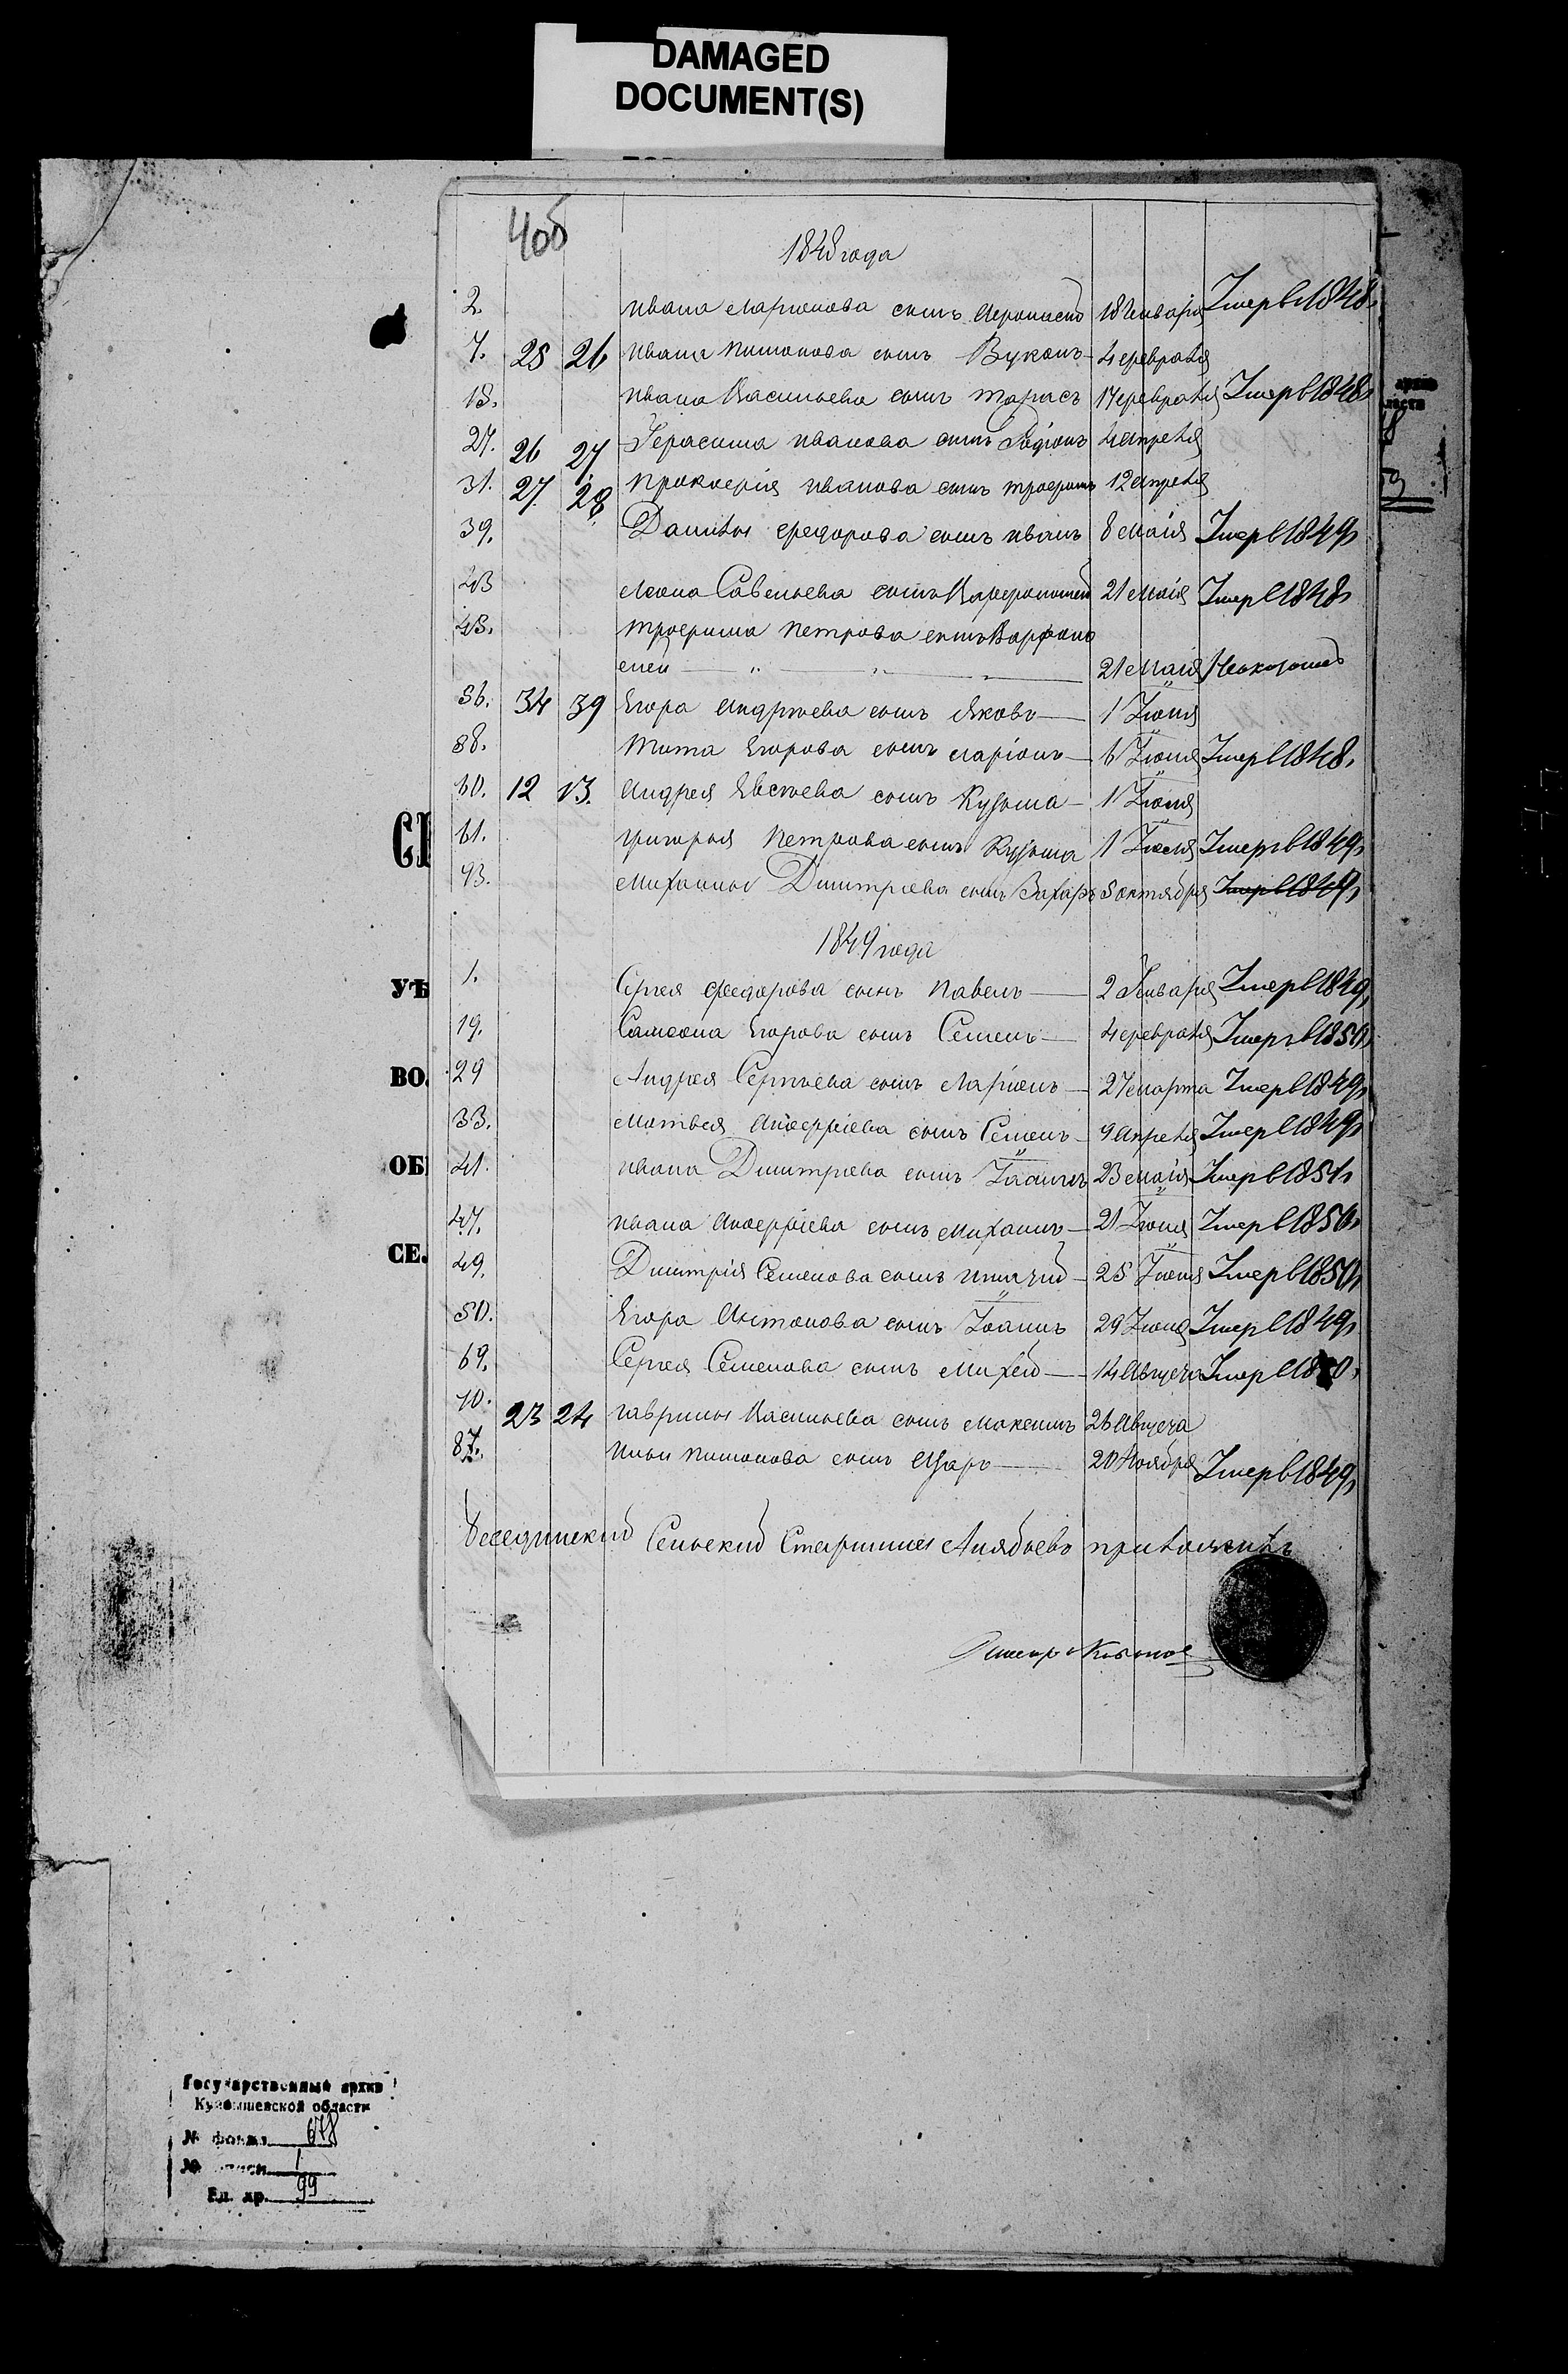 DAMAGED
DOCUMENT(S)
40б
1848 года
2. Ивана Ларионова сынъ 18 Января Умеръ в 1848
7. 25 26 Ивана Пимонова сынъ Вуколъ 4 Февраля
18. Ивана Васильева сынъ Тарасъ 17 Февраля Умер в 1848
27. 26 27. Герасима Иванова сынъ Родіонъ 4 Апреля
31. 27. 28. Прокофія Иванова сынъ Трофимъ 12 Апреля
39. Данилы Федорова сынъ Иванъ 8 Маія Умер в 1849
43 Леона Савельева сынъ 21 Маія Умер в 1848
45. Трофима Петрова сынъ Варфало
мей — " — " — 21 Маія
56. 34 39 Егора Андреева сынъ Яковъ — 1 Іюня
58. Тита Егорова сынъ Ларіонъ — 6 Іюня Умер в 1848.
60. 12 13. Андрея Евсеева сынъ Кузьма — 1 Іюля
61. Григорья Петрова сынъ Кузьма 1 Іюля Умеръ в 1849
93. Михаилы Дмитріева сынъ Захаръ 5 Октября Умер в 1849
1849 года
1. Сергея Федорова сынъ Павелъ — 2 Января Умер в 1849
19. Самсона Егорова сынъ Семенъ — 4 Февраля Умеръ в 1850
29 Андрея Сергеева сынъ Ларіонъ — 27 Марта Умер в 1849
33. Матвея Алексеева сынъ Семенъ — 9 Апреля Умер в 1849
41. Ивана Дмитріева сынъ Іоаннъ 23 Маія Умер в 1851
47. Ивана Алексеева сынъ Михаилъ — 21 Іюня Умер в 1850
49. Дмитрія Семенова сынъ — 25 Іюня Умер в 1850
50. Егора Антонова сынъ Іоаннъ 29 Іюня Умер в 1849
69. Сергея Семенова сынъ Михей — 14 Августа Умер в 1850
70. 23 24 Гаврилы Васильева сынъ Максимъ 26 Августа
87. Ильи Пимонова сынъ Азаръ — 20 Ноября Умер в 1849
Бесединский Сельский Старшина Алябьевъ приложилъ
СП
УѢ
ВО.
ОБ
СЕ.
Государственный архив
Куйбышевской области
№ фонда 678
№ описи 1
Ед. хр. 99